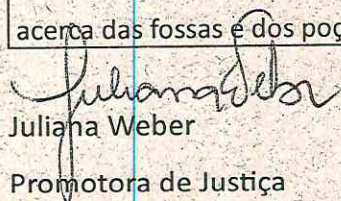 acerca das fossas e dos poç
Juliana Weber
Juliana Weber
Promotora de Justiça